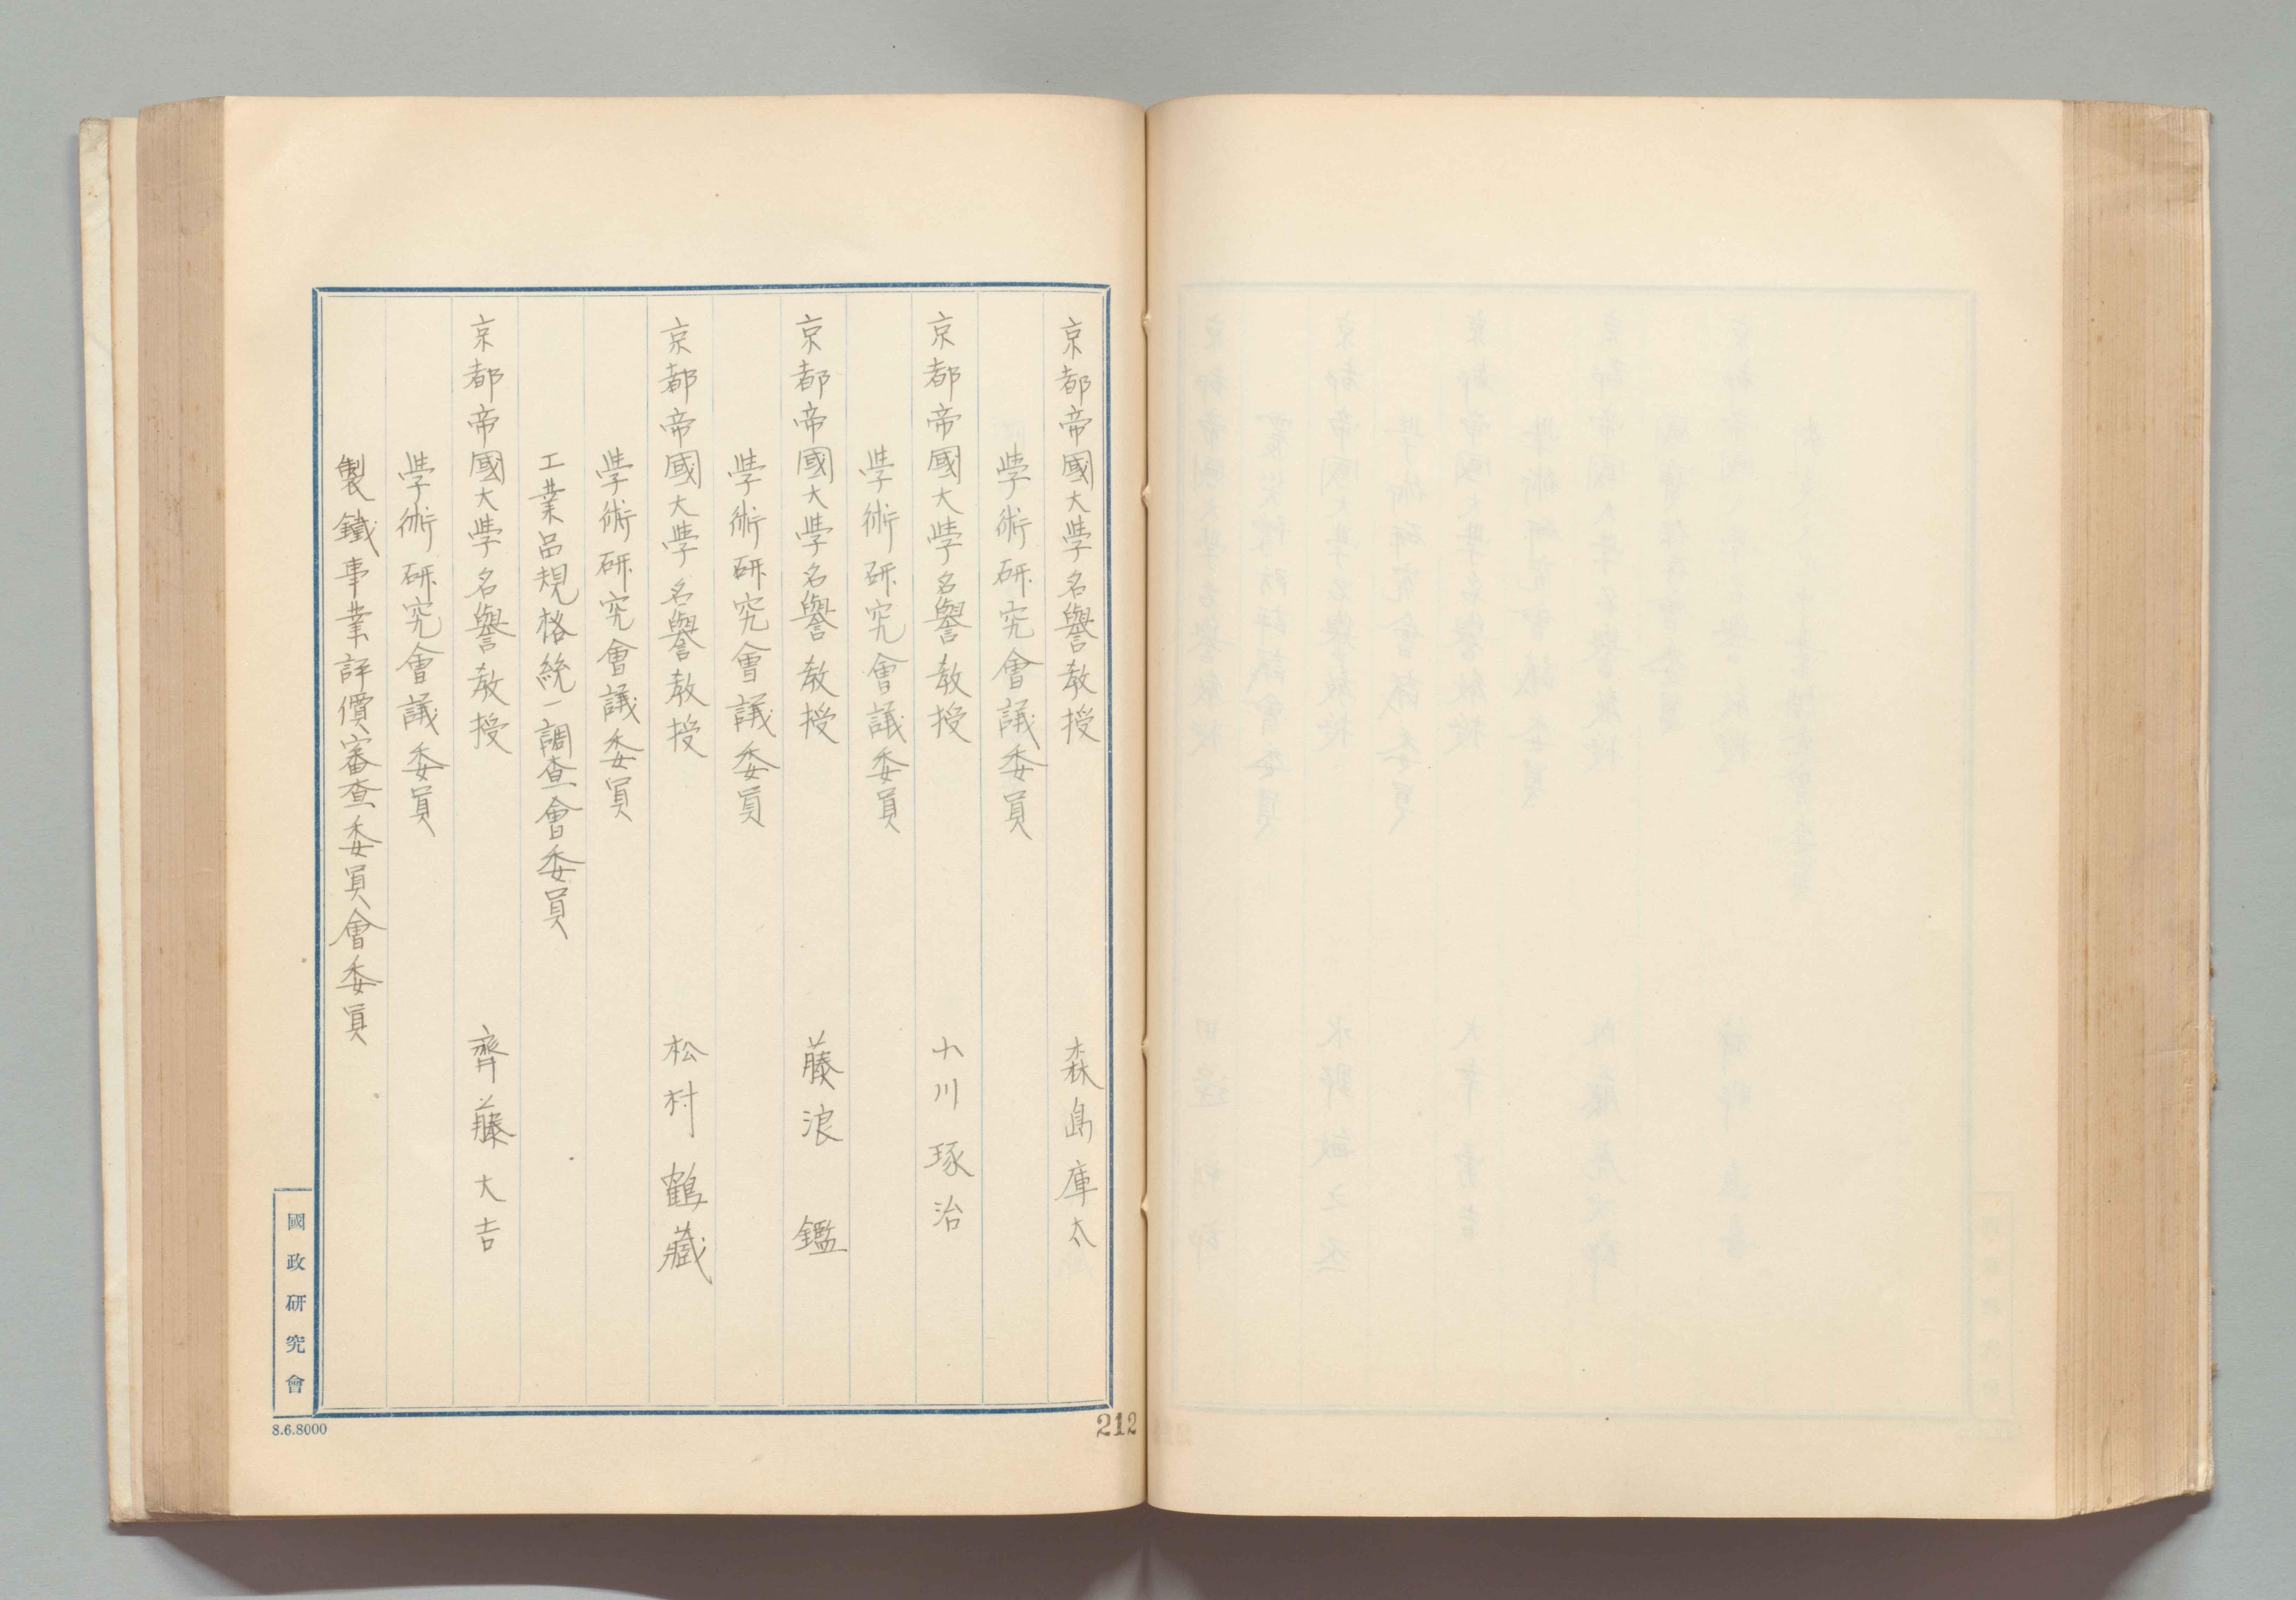 京都帝國大學名譽教授 森島庫太
學術研究會議委員
京都帝國大學名譽教授 小川琢治
學術研究會議委員
京都帝國大學名譽教授 藤浪鑑
學術研究會議委員
京都帝國大學名譽教授 松村鶴藏
學術研究會議委員
工業品規格統一調査會委員
京都帝國大學名譽教授 齊藤大吉
學術研究會議委員
製鐵事業評價審査委員會委員
國政研究會
8.6.8000
212